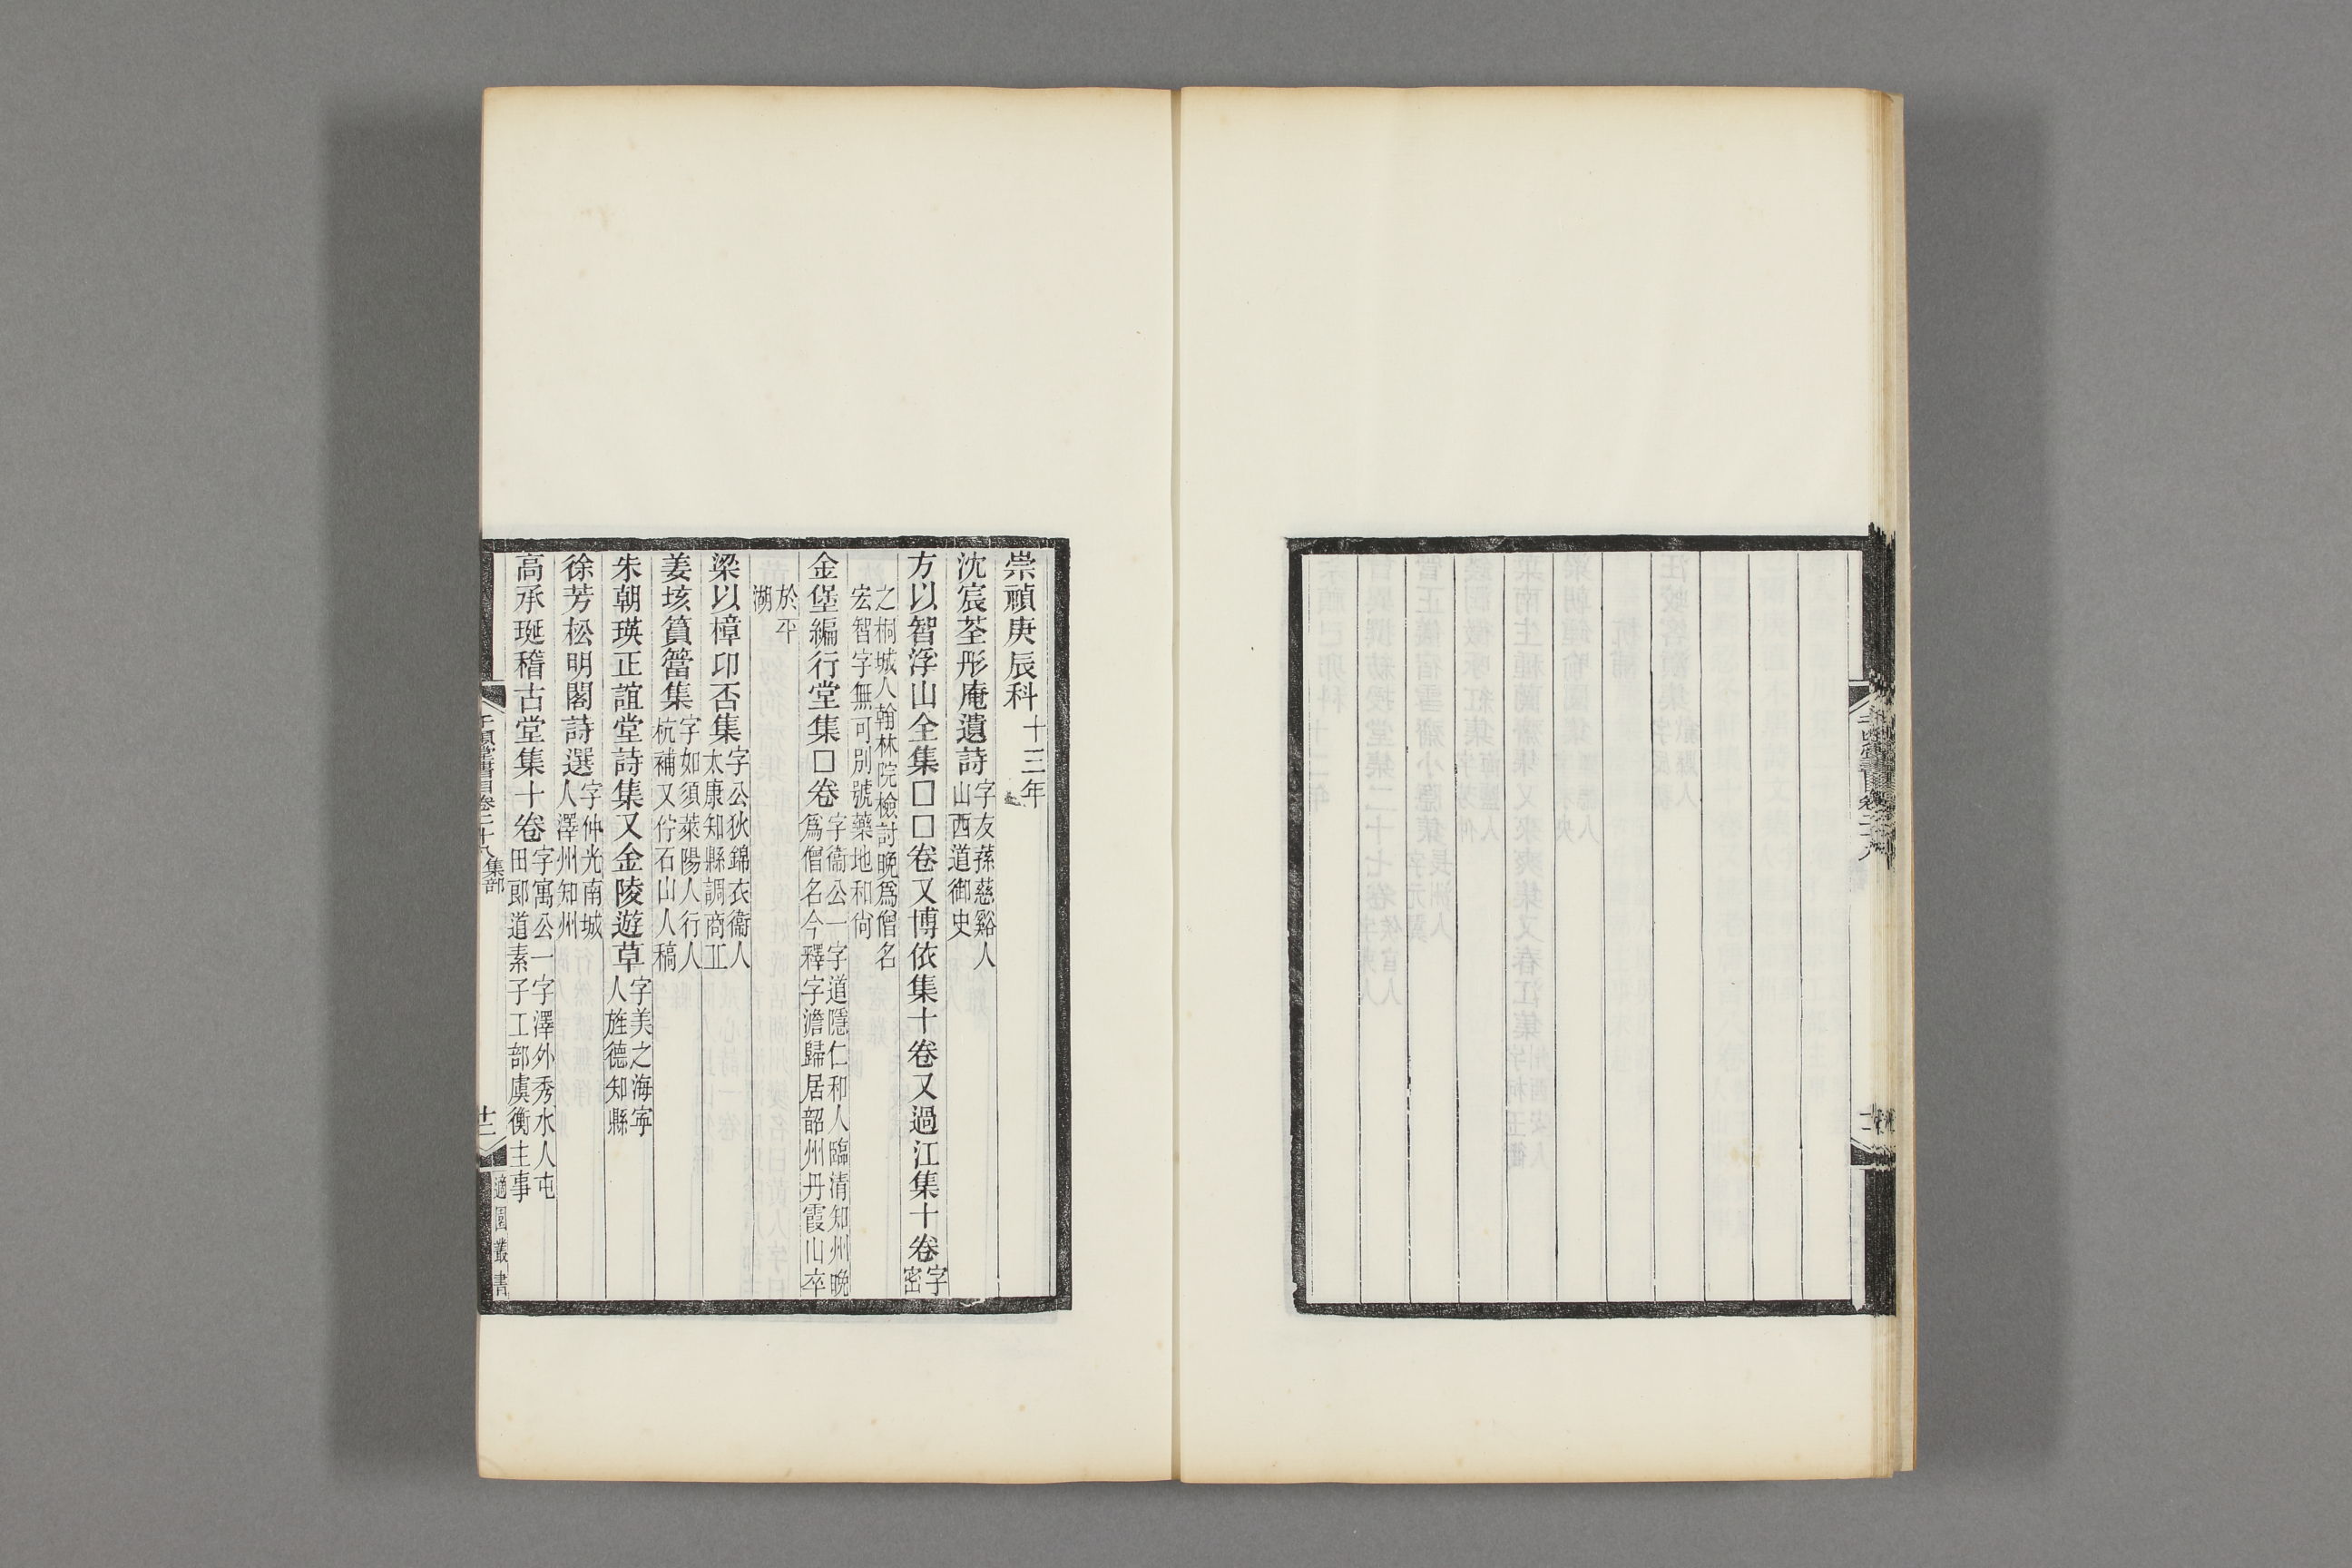 崇禎庚辰科十三年
沈宸荃彤庵遺詩字友蓀慈谿人山西道御史
方以智浮山全集□□卷又博依集十卷又過江集十卷字密
之桐城人翰林院檢討晚爲僧名宏智字無可別號藥地和尙
金堡編行堂集□卷字衞公一字道隱仁和人臨清知州晚爲僧名今釋字澹歸居韶州丹霞山卒
於平湖
梁以樟卬否集字公狄錦衣衞人太康知縣調商丘
姜垓篔簹集字如須萊陽人行人杭補又佇石山人稿
朱朝瑛正誼堂詩集又金陵遊草字美之海寧人旌德知縣
徐芳松明閣詩選字仲光南城人澤州知州
高承埏稽古堂集十卷字寓公一字澤外秀水人屯田郞道素子工部虞衡主事
千頃堂書目卷二十八集部
十二
適園叢書